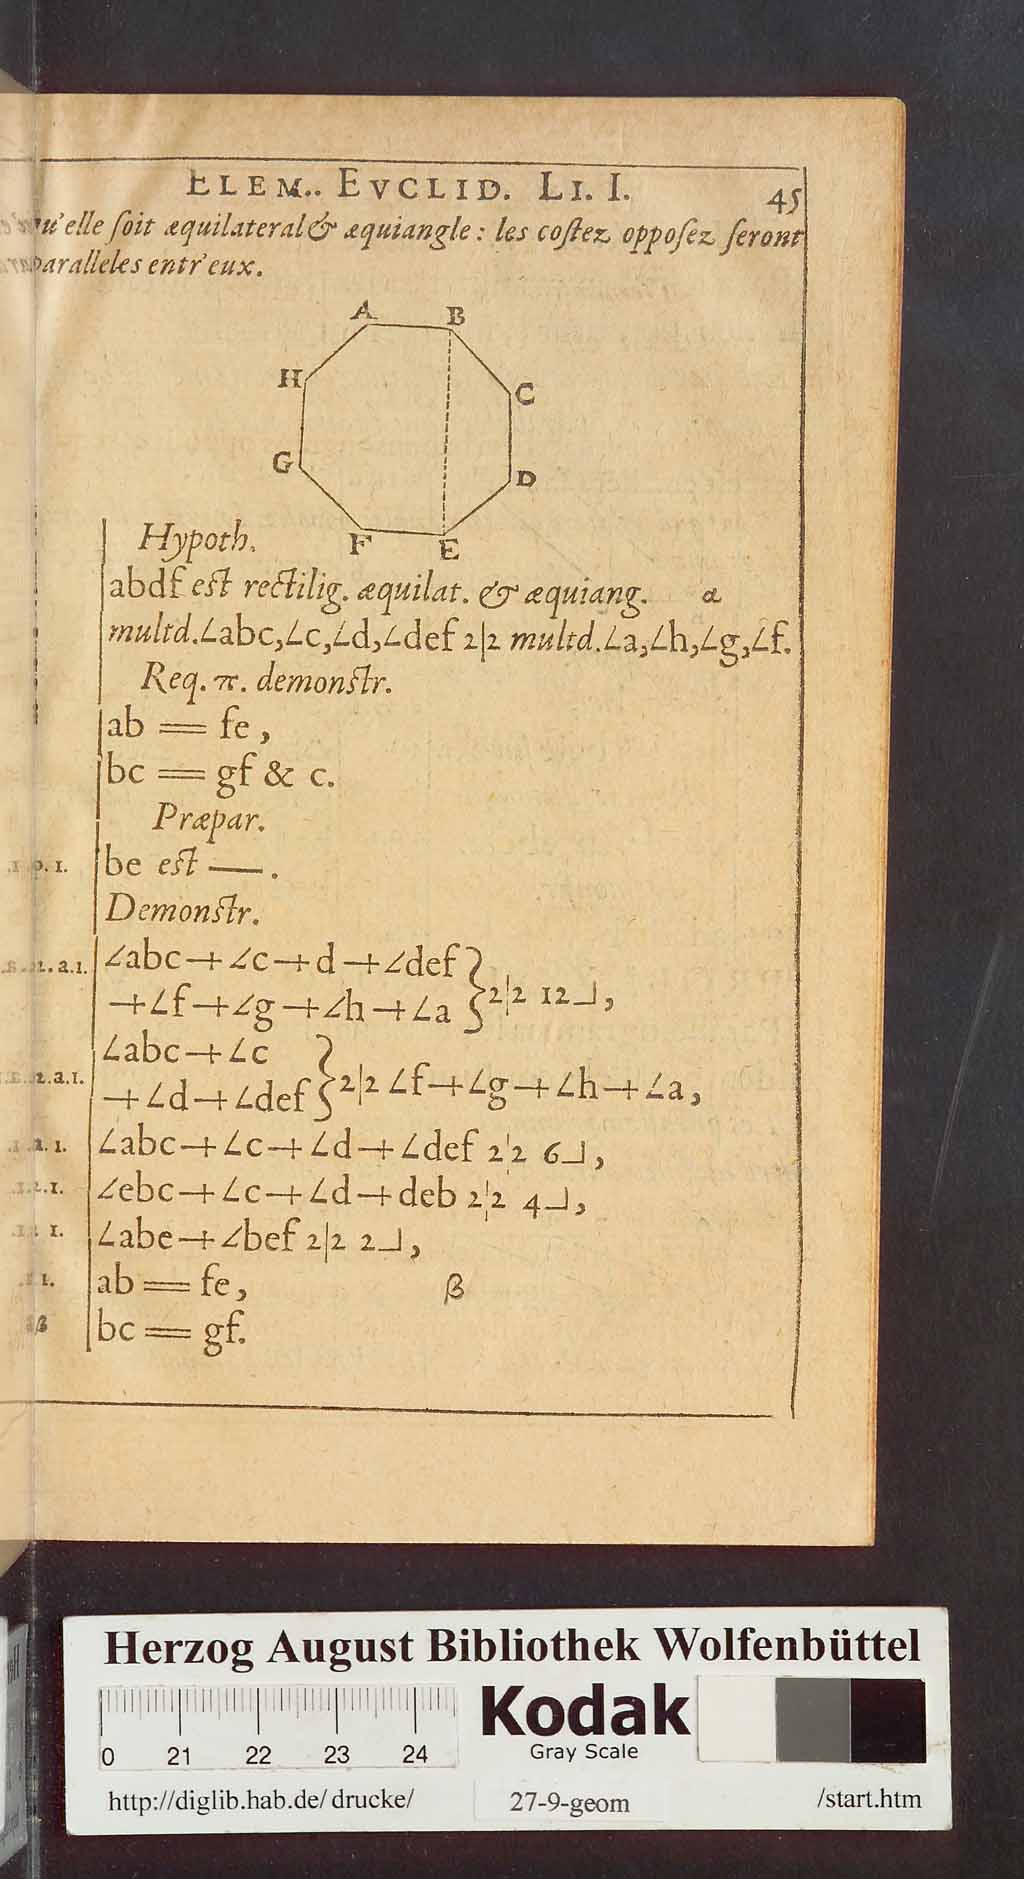 ELEM.. EVCLID. LI. I. 45
qu'elle ſoit æquilateral & æquiangle : les coſtez oppoſez ſeront
paralleles entr'eux.
A B
H C
G D
F E
Hypoth.
abdf eſt rectilig. æquilat. & æquiang. α
multd.∠abc,∠c,∠d,∠def 2|2 multd.∠a,∠h,∠g,∠f.
Req. π. demonſtr.
ab = fe ,
bc = gf & c.
Præpar.
be eſt — .
Demonſtr.
∠abc + ∠c + d + ∠def
+ ∠f + ∠g + ∠h + ∠a } 2|2 12⅃ ,
∠abc + ∠c
+ ∠d + ∠def } 2|2 ∠f + ∠g + ∠h + ∠a ,
∠abc + ∠c + ∠d + ∠def 2|2 6⅃ ,
∠ebc + ∠c + ∠d + deb 2|2 4⅃ ,
∠abe + ∠bef 2|2 2⅃ ,
ab = fe , β
β bc = gf.
Herzog August Bibliothek Wolfenbüttel
0 21 22 23 24
Kodak
Gray Scale
http://diglib.hab.de/ drucke/ 27-9-geom /start.htm